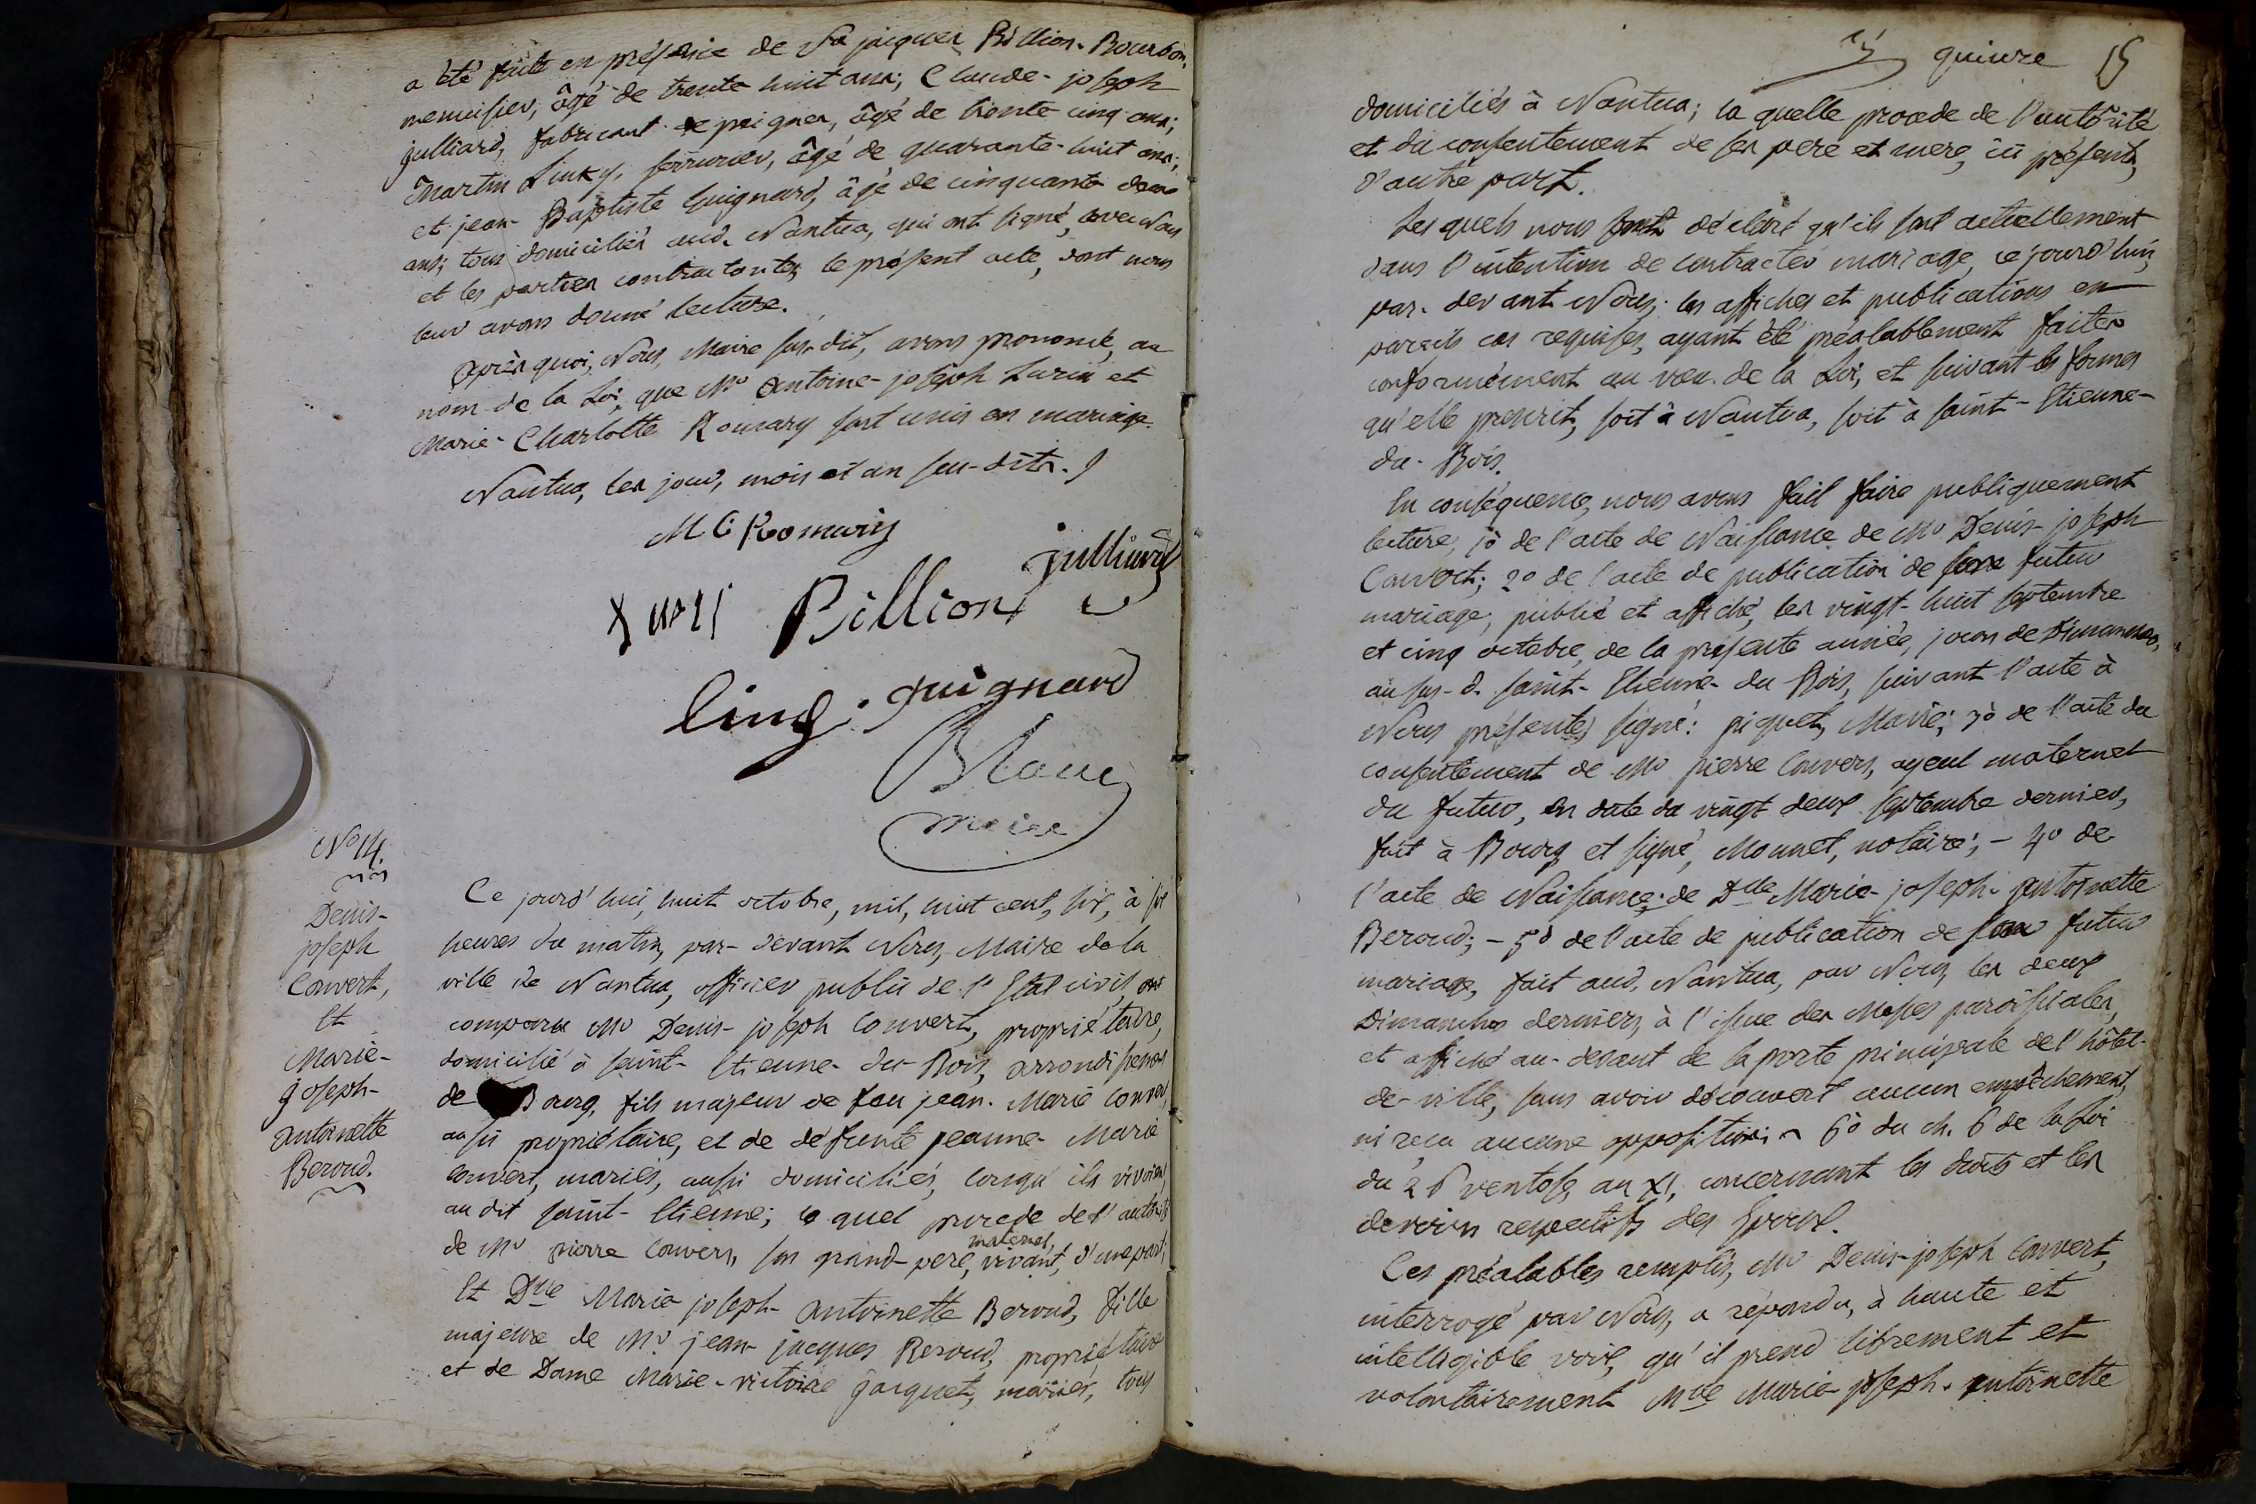 a été faite en présence de Sr jacques Billion-Bourbon,
menuisier, âgé de trente huit ans; Claude-joseph
julliard, fabricant de peignes, âgé de trente cinq ans;
Martin Linky, serrurier, âgé de quarante-huit ans;
et jean-Baptiste Guignard, âgé de cinquante deux
ans; tous domiciliés aud. Nantua, qui ont signé, avec Nous
et les parties contractantes, le présent acte, dont nous
leur avons donné lecture.
Après quoi, Nous, Maire sus-dit, avons prononcé, au
nom de la Loi, que Mr Antoine-joseph et
Marie-Charlotte Romary sont unis en mariage.
Nantua, les jour, mois et an sus-dits.
M C Romary
julliard
Billion
Linq. guignard
Blanc
maire
No 14.
Denis-
joseph
Convert,
Et
Marie-
Joseph-
antoinette
Beroud.
Ce jourd'hui, huit octobre, mil, huit cent, six, à six
heures du matin, par-devant Nous, Maire de la
ville de Nantua, officier public de l'Etat civil ont
comparu Mr Denis-joseph Convert, propriétaire,
domicilié à Saint-Etienne-du-Bois, arrondissement
de Bourg, fils majeur de feu jean-Marie Convert,
aussi propriétaire, et de défunte jeanne-Marie
Convert, mariés, aussi domiciliés, lorsqu'ils vivoient,
au dit Saint-Etienne; le quel procede de l'autorité
de Mr pierre Convers, son grand-pere maternel, vivant, d'une part;
Et Dlle Marie-joseph-antoinette Beroud, fille
majeure de Mr. jean-jacques Beroud, propriétaire
et de Dame Marie-victoire jacquet, mariés, tous
quinze 15
domiciliés à Nantua; la quelle procede de l'autorité
et du consentement de ses pere et mere, ici présents,
d'autre part.
Les quels nous ont déclaré qu'ils sont actuellement
dans l'intention de contracter mariage, ce jourd'hui,
par-devant Nous; les affiches et publications en
pareils cas requises, ayant été préalablement faites
conformément au vœu de la Loi, et suivant les formes
qu'elle prescrit, soit à Nantua, soit à Saint-Etienne-
du-Bois.
En conséquence, nous avons fait faire publiquement
lecture, 1o de l'acte de Naissance de Mr Denis-joseph
Convert; 2o de l'acte de publication de son futur
mariage, publié et affiché, les vingt-huit septembre
et cinq octobre, de la présente année, jours de Dimanches,
au sus-d. Saint-Etienne-du Bois, suivant l'acte à
Nous présenté, signé: piquet, Maire; 3o de l'acte du
consentement de Mr pierre Convers, ayeul maternel
du futur, en date du vingt deux septembre dernier,
fait à Bourg et signé, Monnet, notaire; - 4o de
l'acte de Naissance de Dlle Marie-joseph-antoinette
Beroud; - 5o de l'acte de publication de son futur
mariage, fait aud. Nantua, par Nous, les deux
Dimanches derniers, à l'issue des Messes paroissiales,
et affiché au-devant de la porte principale de l'hôtel-
de-ville, sans avoir découvert aucun empêchement,
ni reçu aucune opposition; 6o du ch. 6 de la Loi
du 26 ventose, an XI, concernant les droits et les
devoirs respectifs des Epoux.
Ces préalables remplis, Mr Denis-joseph Convert,
interrogé par Nous, a répondu, à haute et
intelligible voix, qu'il prend librement et
volontairement Mlle Marie-joseph-antoinette